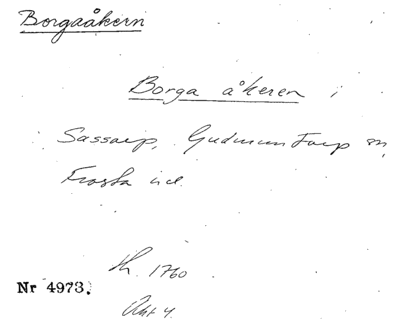 Borgaåkern
Borga åkeren i
Sassarp, Gudmuntorp sn,
Frosta hd.
Lh. 1760
Nr 4973.
Akt 4.